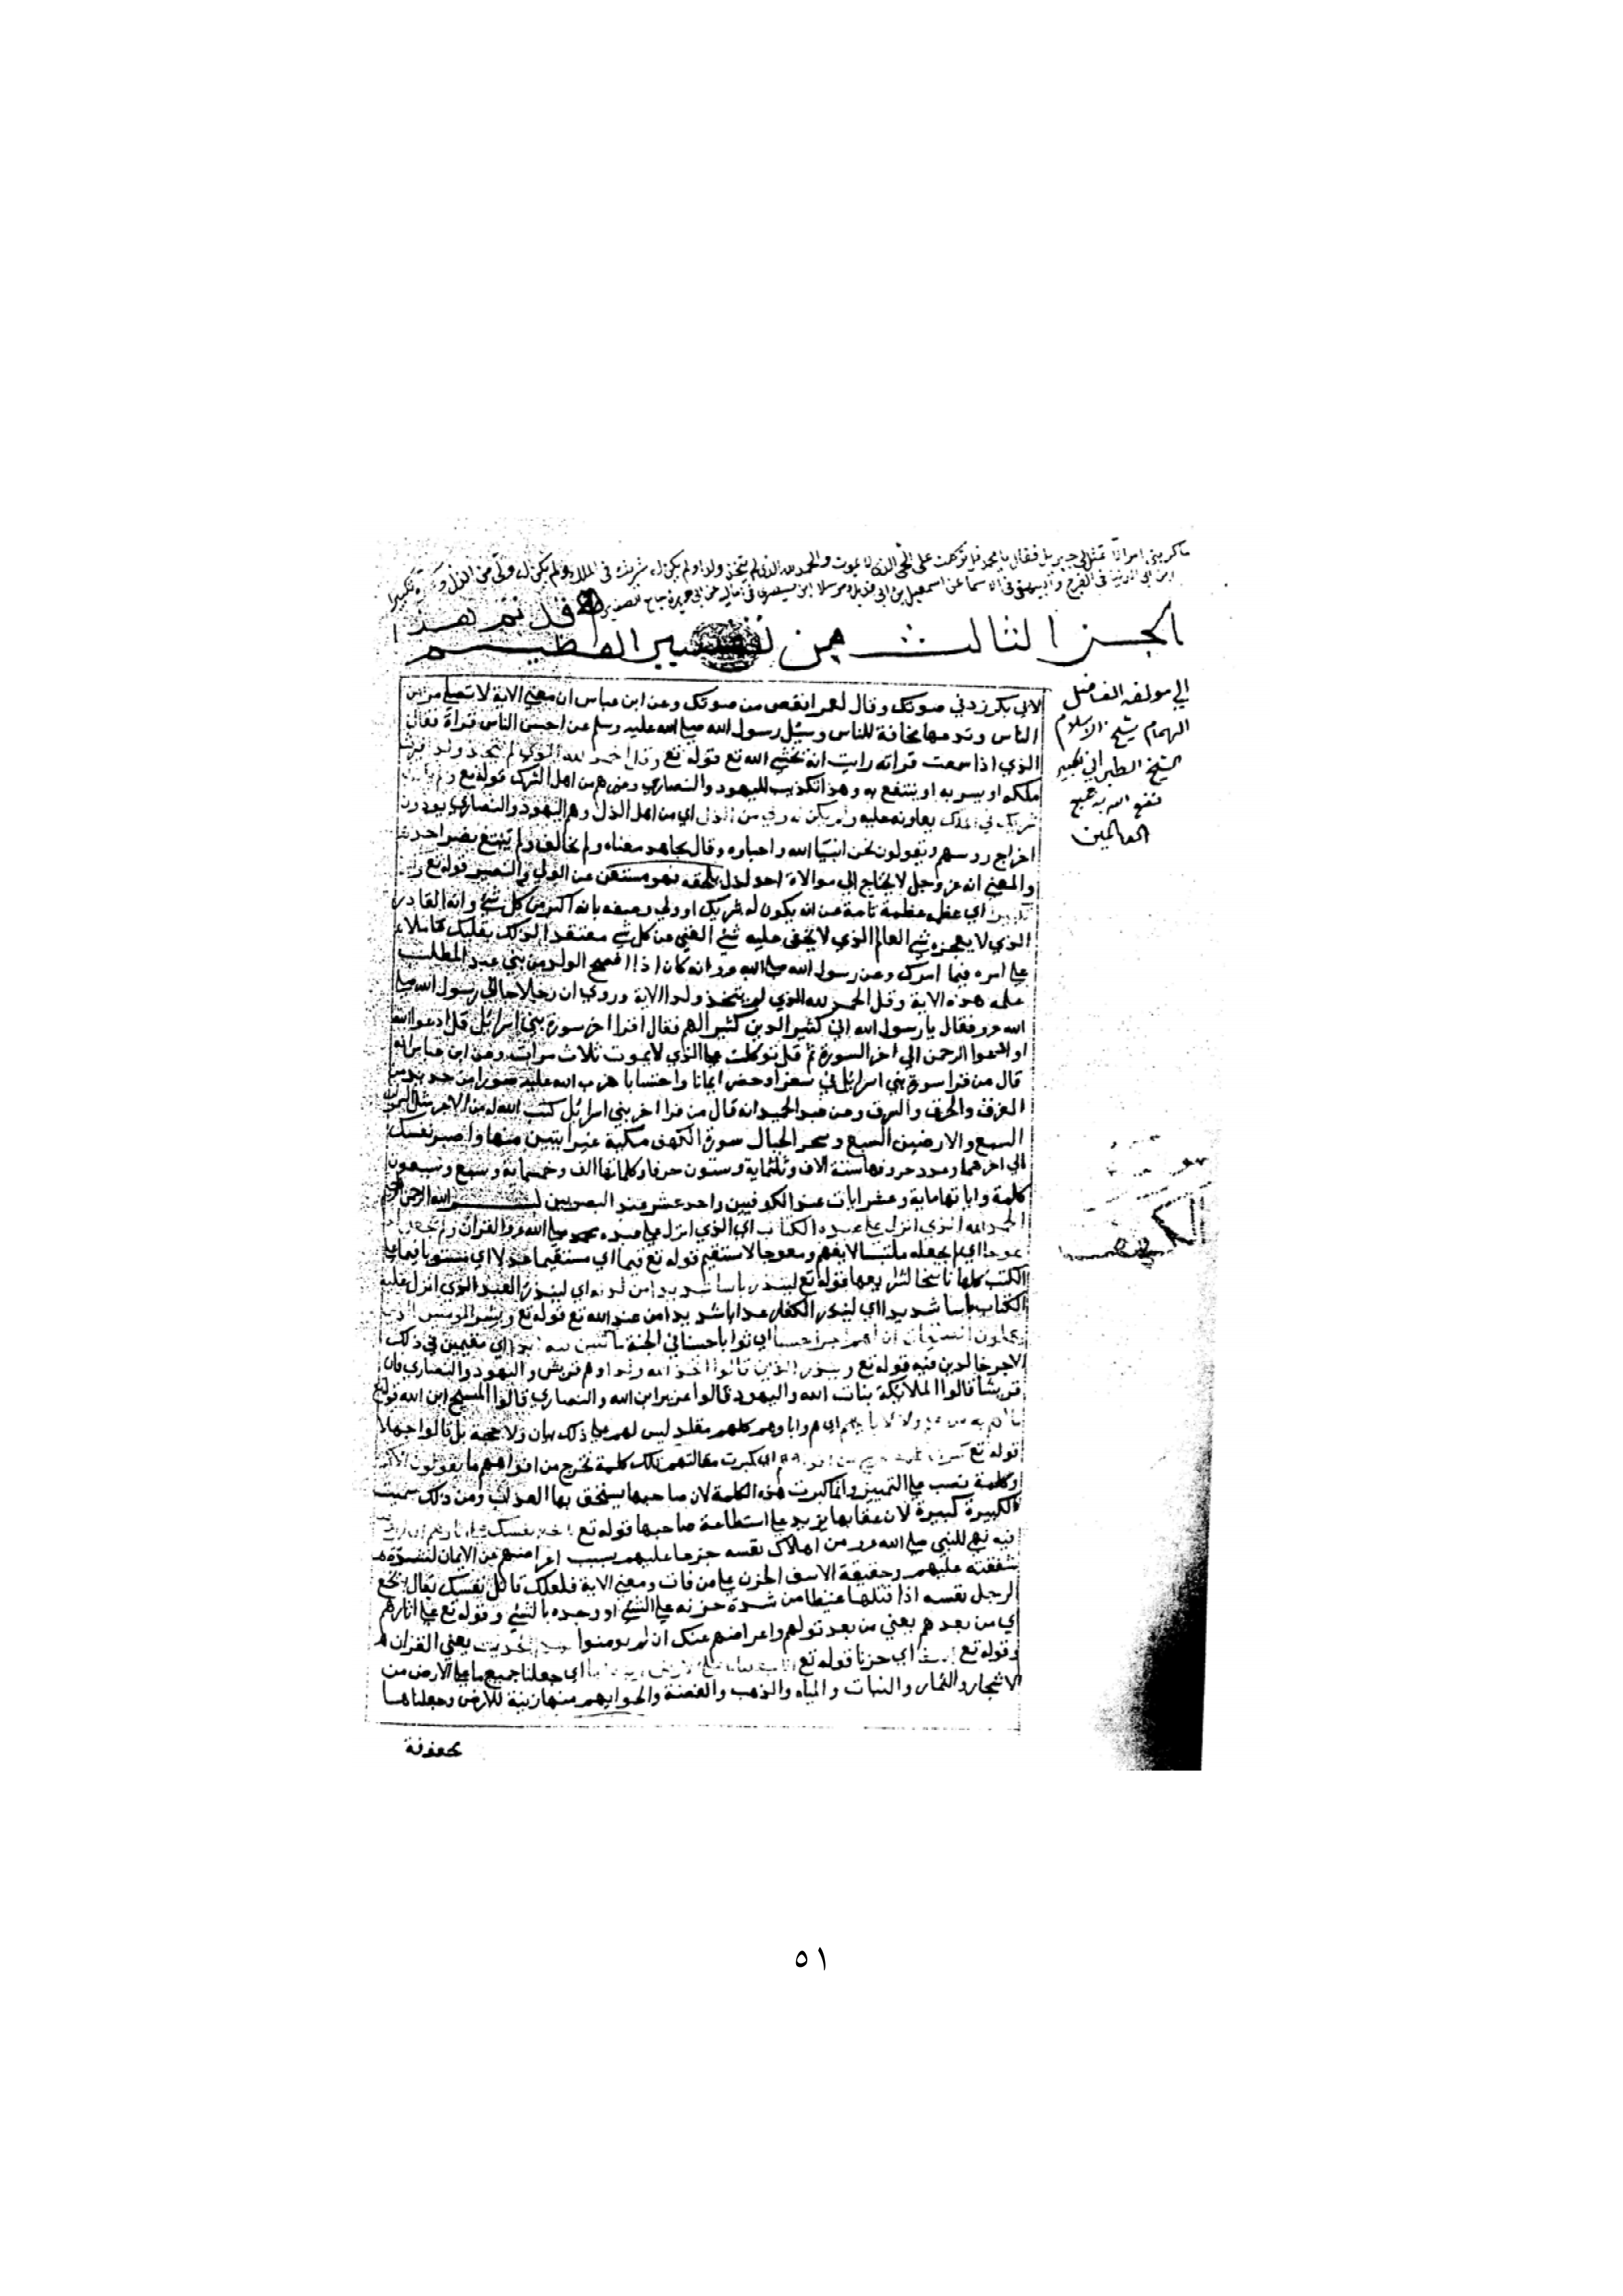 ما كربني امر الا تمثل لي جبريل فقال يا محمد قل توكلت على الحي الذي لا يموت والحمد لله الذي لم يتخذ ولدا ولم يكن له شريك في الملك ولم يكن له ولي من الذل وكبره تكبيرا
ابن ابي الدنيا في الفرج والبيهقي في الاسما عن اسمعيل بن ابي فديك مرسلا ابن صصرى في اماليه عن ابي هريرة جامع الصغير
قد تم هذا
الجز الثالث من تفسير الطبراني العظيم
الي مولفه الفاضل
الهمام شيخ الاسلام
الشيخ الطبراني الكبير
نفع الله به جميع
العالمين
لابي بكر زد في صوتك وقال لعمر انقص من صوتك وعن ابن عباس ان معني الاية لا تصلي مراياة
الناس وتدعها مخافة للناس وسئل رسول الله صلي الله عليه وسلم عن احسن الناس قراة فقال
الذي اذا سمعت قراته رايت انه يخشي الله تع قوله تع وقل الحمد لله الذي لم يتخذ ولدا
ملكه او يسر به او ينتفع به وهذا تكذيب لليهود والنصاري ومن هم من اهل الشرك قوله تع ولم يكن له
شريك في الملك يعاونه عليه ولم يكن له ولي من الذل اي من اهل الذل وهم اليهود والنصاري يودون
اخراج روسهم ويقولون نحن انبيا الله واحباوه وقال مجاهد معناه ولم يحالف ولم يبتغ نصر احد
والمعني انه عز وجل لا يحتاج الي موالاة احد لذل يلحقه فهو مستغن عن الولي والنصير قوله تع
تكبيرا اي عظمه عظمة تامة عن ان يكون له شريك او ولي وصفه بانه اكبر من كل شي وانه القادر
الذي لا يعجزه شي العالم الذي لا يخفي عليه شي الغني عن كل شي معتقدا لذلك بقلبك عاملا
علي امره فيما امرك وعن رسول الله صلي الله انه كان اذا افصح الولد من بني عبد المطلب
علمه هذه الاية وقل الحمد لله الذي لم يتخذ ولدا الاية وروي ان رجلا جا الي رسول الله صلي
الله فقال يا رسول الله اني كثير الدين كثير الهم فقال اقرا اخر سورة بني اسرائيل قل ادعوا الله
او ادعوا الرحمن الي اخر السورة ثم قل توكلت علي الحي الذي لا يموت ثلاث مرات وعن ابن عباس انه
قال من قرا سورة بني اسرائيل في سفر او حضر ايمانا واحتسابا ضرب الله عليه سورا من حديد من
الغرق والحرق والسرق وعن عبد الحميد انه قال من قرا اخر بني اسرائيل كتب الله له من الاجر مثل السموات
السبع والارضين السبع وسحر الجبال سورة الكهف مكية غير ايتين منها واصبر نفسك
الي اخرهما وعدد حروفها ستة الاف وثلثماية وستون حرفا وكلماتها الف وخمسماية وسبع وسبعون
كلمة واياتها ماية وعشر ايات عند الكوفيين واحد عشر عند البصريين بسم الله الرحمن الرحيم
الحمد لله الذي انزل علي عبده الكتاب اي الذي انزل علي عبده محمد صلي الله القران ولم يجعل له
عوجا اي لم يجعله ملتبسا لا يفهم ومعوجا لا يستقيم قوله تع قيما اي مستقيما عدلا
الكتب كلها ناسخا لشرايعها قوله تع لينذر باسا شديدا من لدنه اي لينذر العبد الذي انزل عليه
الكتاب باسا شديدا اي لينذر الكفار عذابا شديدا من عند الله تع قوله تع ويبشر المومنين الذين
يعملون الصالحات ان لهم اجرا حسنا اي ثوابا حسنا في الجنة ماكثين فيه ابدا اي مقيمين في ذلك
الاجر خالدين فيه قوله تع وينذر الذين قالوا اتخذ الله ولدا وهم قريش واليهود والنصاري فان
قريشا قالوا الملايكة بنات الله واليهود قالوا عزير ابن الله والنصاري قالوا المسيح ابن الله قوله تع
ما لهم به من علم ولا لابايهم اي هم واباوهم كلهم مقلد ليس لهم علي ذلك بيان ولا حجة بل قالوا جهلا
قوله تع كبرت كلمة تخرج من افواههم اي كبرت مقالتهم تلك كلمة تخرج من افواههم ما يقولون الا كذبا
وكلمة نصب علي التمييز وانما كبرت هذه الكلمة لان صاحبها يستحق بها العذاب ومن ذلك سميت
الكبيرة كبيرة لان عقابها يزيد علي استطاعة صاحبها قوله تع باخع نفسك علي اثارهم
فيه نهي للنبي صلي الله من اهلاك نفسه حزنا عليهم بسبب اعراضهم عن الايمان لشدة
شفقته عليهم وحقيقة الاسف الحزن علي من فات ومعني الاية فلعلك قاتل نفسك يقال بخع
الرجل نفسه اذا قتلها غيظا من شدة حزنه علي الشي او وجده بالشي وقوله تع علي اثارهم
اي من بعدهم يعني من بعد تولهم واعراضهم عنك ان لم يومنوا بهذا الحديث يعني القران
وقوله تع اسفا اي حزنا قوله تع انا جعلنا ما علي الارض زينة لها اي جعلنا جميع ما علي الارض من
الاشجار والثمار والنبات والمياه والذهب والفضة والحوا بهم منها زينة للارض وجعلناها
سورة
الكهف
محفوفة
٥١